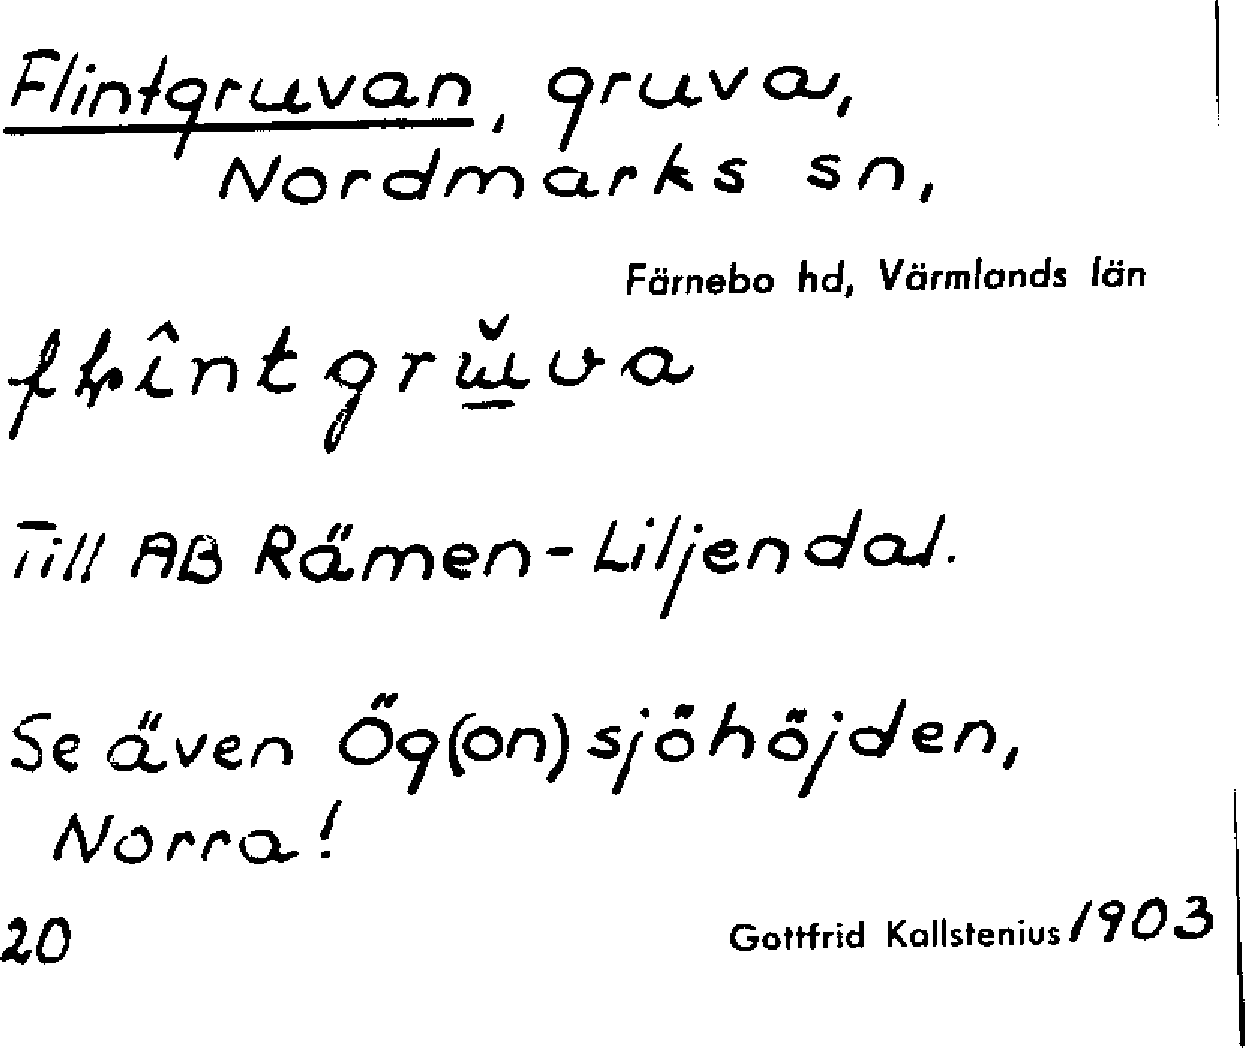 Flintgruvan, gruva,
Nordmarks sn,
Färnebo hd, Värmlands län
flintgruva
Till AB Rämen-Liljendal.
Se även Ög(on)sjöhöjden,
Norra!
20 Gottfrid Kallstenius 1903